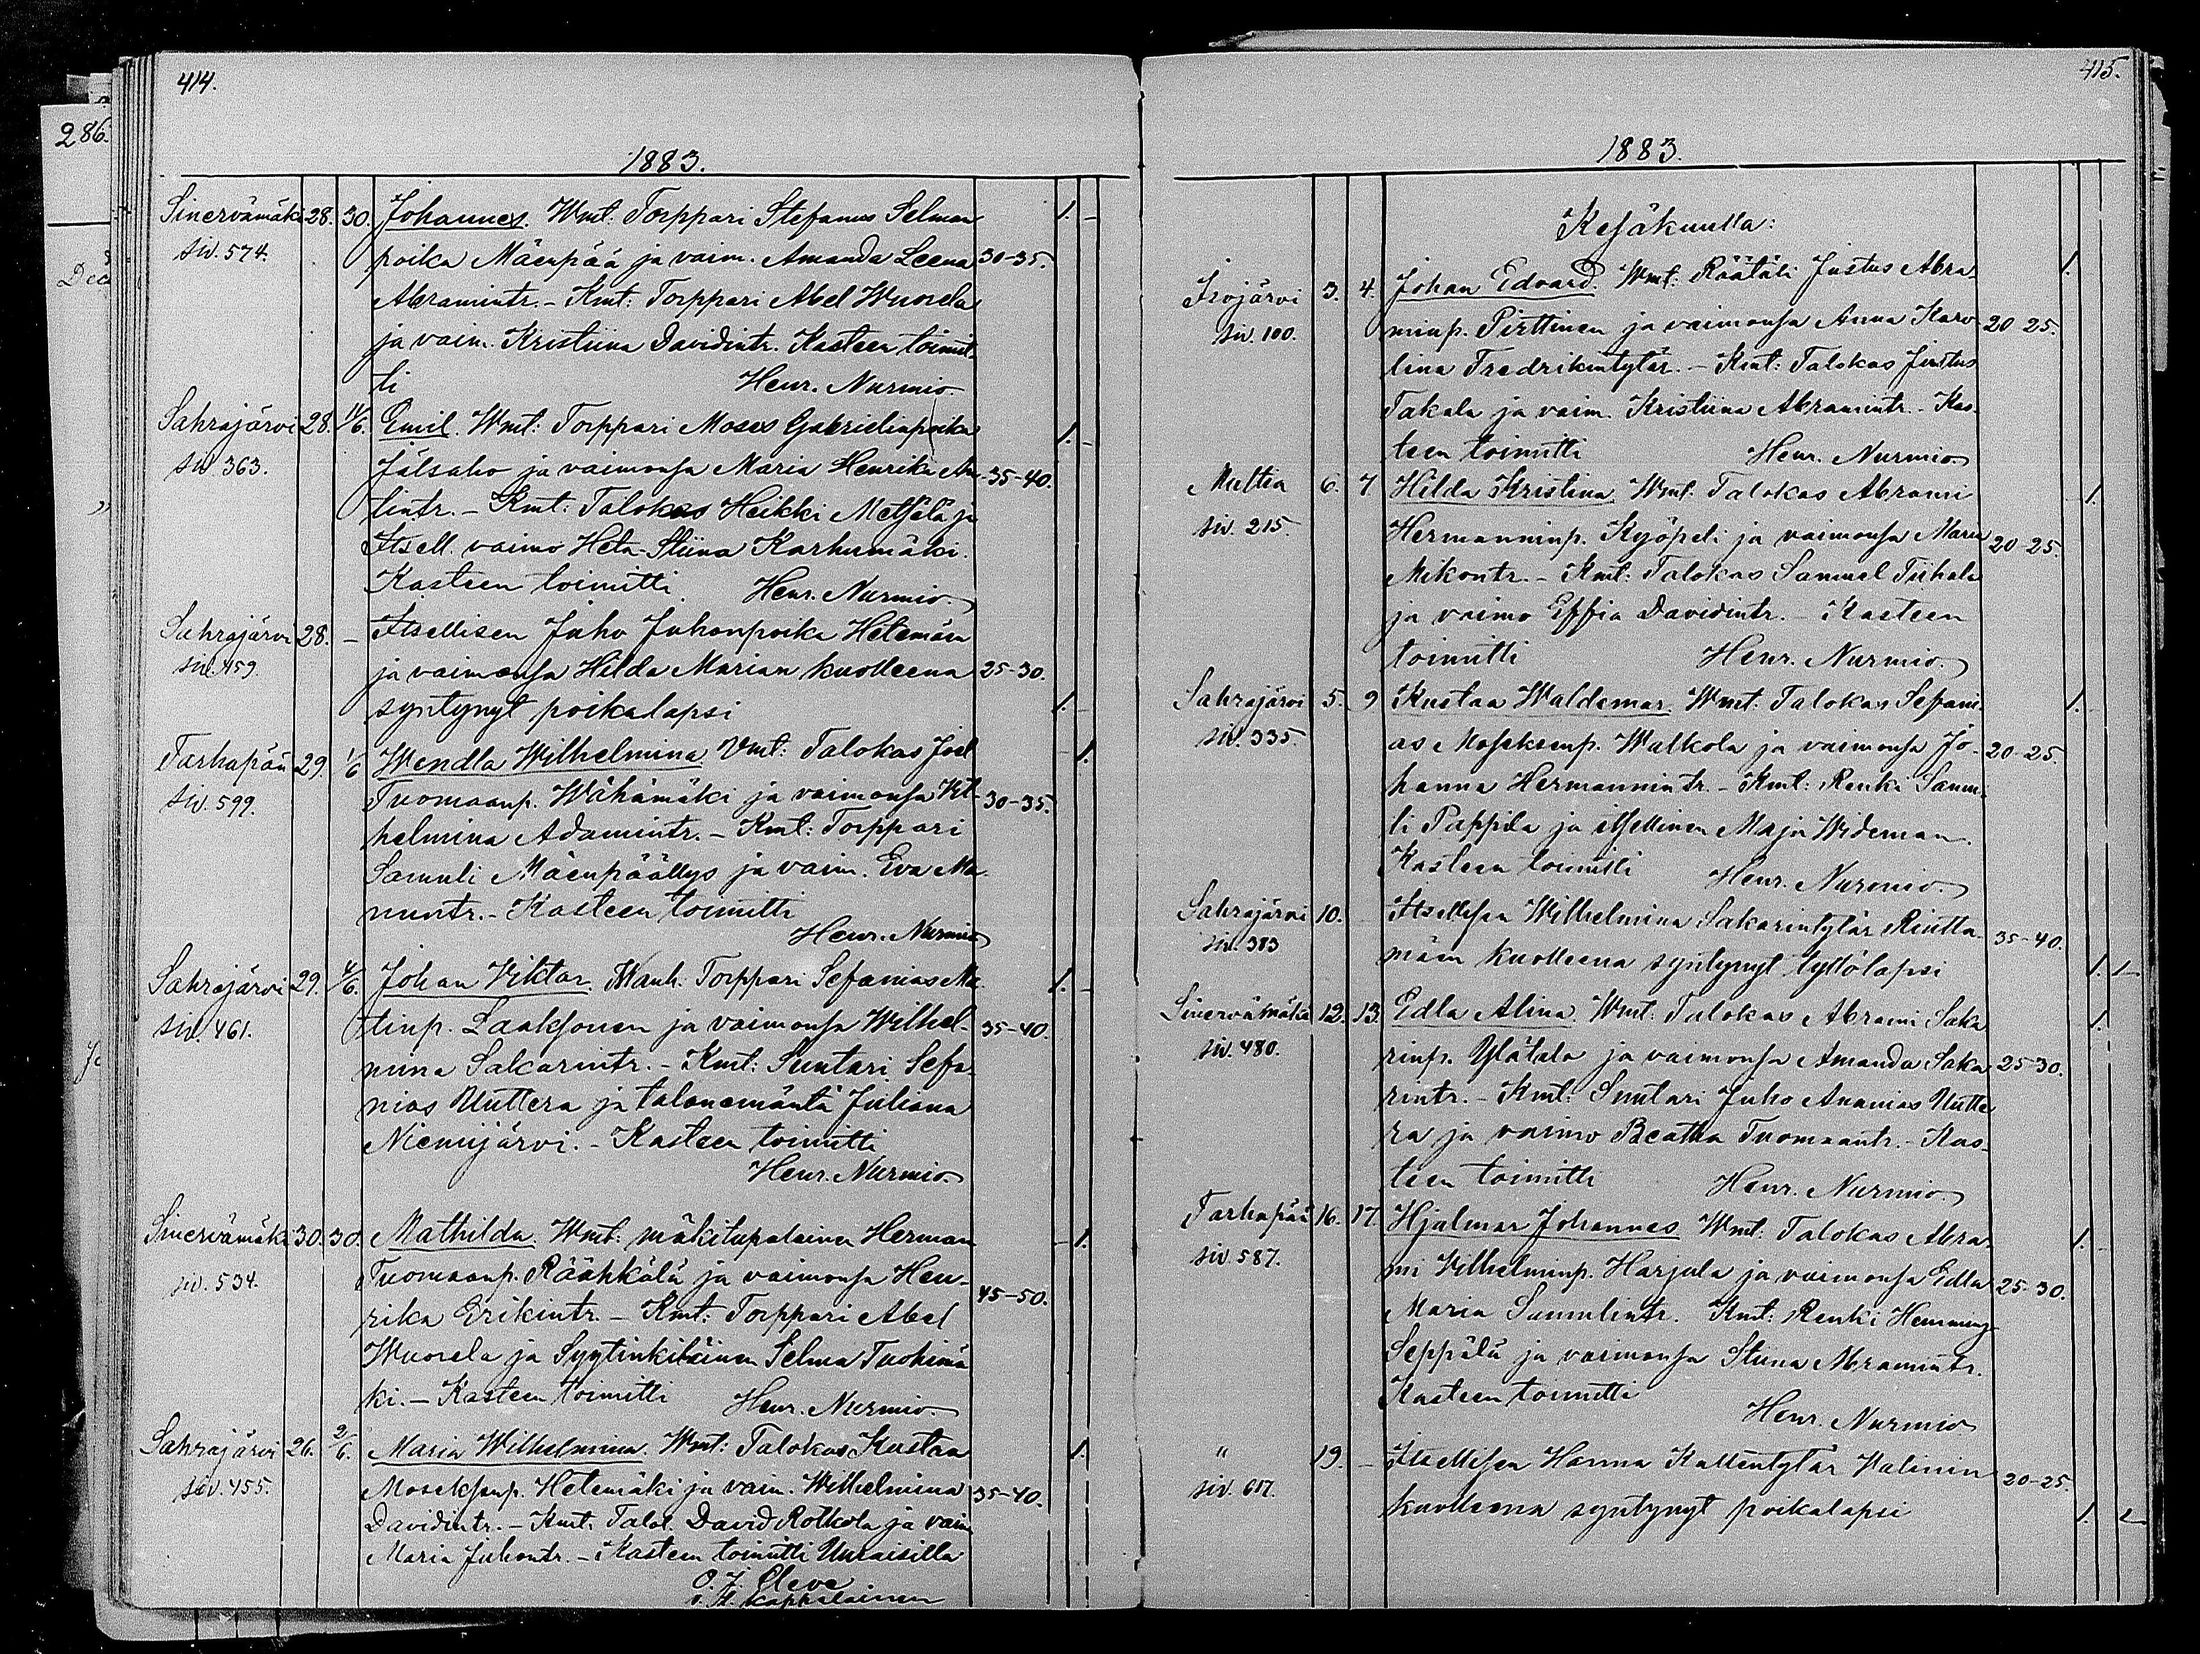 414.
286.
1883.
Sinervämäki 28. 30. Johannes. Wmt. Torppari Stefanus Selman
siv. 574. poika Mäenpää ja vaim. Amanda Leena 30-35. 1.
Abramintr. - Kmt: Torppari Abel Wuorela
ja vaim. Kristiina Davidintr. Kasteen toimit-
ti Henr. Nurmio.
Sahrajärvi 28. Emil. Wmt: Torppari Moses Gabrielinpoika 1.
siv. 363. Jälsaho ja vaimonsa Maria Henrika An- 35-40.
tintr. - Kmt: Talokas Heikki Metsälä ja
Itsell. vaimo Heta-Stiina Karhumäki.
Kasteen toimitti. Henr. Nurmio.
Sahrajärvi 28. - Itsellisen Juho Juhonpoika Hetemäen
siv. 459. ja vaimonsa Hilda Marian kuolleena 25-30.
syntynyt poikalapsi 1.
Tarhapää 29. 1/6 Wendla Wilhelmina Vmt: Talokas Joel 1.
siv. 599. Tuomaanp. Wähämäki ja vaimonsa Vil- 30-35.
helmina Adamintr. - Kmt: Torppari
Samuli Mäenpäällys ja vaim. Eva Ma-
nuntr. - Kasteen toimitti
Henr. Nurmio
Sahrajärvi 29. Johan Viktor. Wanh. Torppari Sefanias Ma- 1.
siv. 461. tinp. Laaksonen ja vaimonsa Wilhel- 35-40.
mina Sakarintr. - Kmt: Suntari Sefa-
nias Uuttera ja talonemäntä Juliana
Niemijärvi. - Kasteen toimitti
Henr. Nurmio.
Sinervämäki 30. 30. Mathilda. Wmt: mäkitupalainen Herman 1.
siv. 534. Tuomaanp. Räähkälä ja vaimonsa Hen- 45-50.
rika Erikintr. - Kmt: Torppari Abel
Wuorela ja Syytinkiläinen Selma Tuohimä
ki. - Kasteen toimitti Henr. Nurmio.
Sahrajärvi 26. 2/6. Maria Wilhelmina. Wmt: Talokas Kustaa 1.
siv. 455. Moseksenp. Hetemäki ja vaim. Wilhelmina 35-40.
Davidintr. - Kmt. Talol. David Rotkola ja vaim
Maria Juhontr. - Kasteen toimitti Uuraisilla
O. J. Cleve
v. t. kappalainen
415.
1883.
Kesäkuulla:
Isojärvi 3. 4. Johan Edvard. Wmt: Räätäli Justus Abra- 1.
siv. 100. minp. Pirttinen ja vaimonsa Anna Karo- 20-25.
lina Fredrikintytär. - Kmt: Talokas Justus
Takala ja vaim. Kristiina Abramintr. - Kas-
teen toimitti Henr. Nurmio
Multia 6. 7 Hilda Kristina. Wmt. Talokas Abrami 1.
siv. 215. Hermanninp. Kyöpeli ja vaimonsa Maria 20-25.
Mikontr. - Kmt: Talokas Samuel Tiihala
ja vaimo Effia Davidintr. - Kasteen
toimitti Henr. Nurmio.
Sahrajärvi 5. 9 Kustaa Waldemar. Wmt. Talokas Sefani- 1.
siv. 335. as Moseksenp. Walkola ja vaimonsa Jo- 20-25.
hanna Hermannintr. - Kmt: Renki Samu-
li Pappila ja itsellinen Maja Wideman.
Kasteen toimitti Henr. Nurmio.
Sahrajärvi 10. Itsellisen Wilhelmina Sakarintytär Rintta- 35-40.
siv. 383 mäen kuolleena syntynyt tyttölapsi 1.
Sinervämäki 12. 13. Edla Alina. Wmt. Talokas Abrami Saka 1.
siv. 480. rinp. Ylätalo ja vaimonsa Amanda Saka 25-30.
rintr. - Kmt: Suntari Juho Ananias Uutte
ra ja vaimo Beatha Tuomaantr. - Kas-
teen toimitti Henr. Nurmio
Tarhapää 16. 17. Hjalmar Johannes. Wmt: Talokas Abra- 1.
siv. 587. mi Vilhelminp. Harjula ja vaimonsa Edla 25-30.
Maria Samulintr. Kmt: Renki Hemming
Seppälä ja vaimonsa Stiina Abramintr.
Kasteen toimitti
Henr. Nurmio
" 19. - Itsellisen Hanna Kallentytär Walinin 20-25.
siv. 617. kuolleena syntynyt poikalapsi 1.